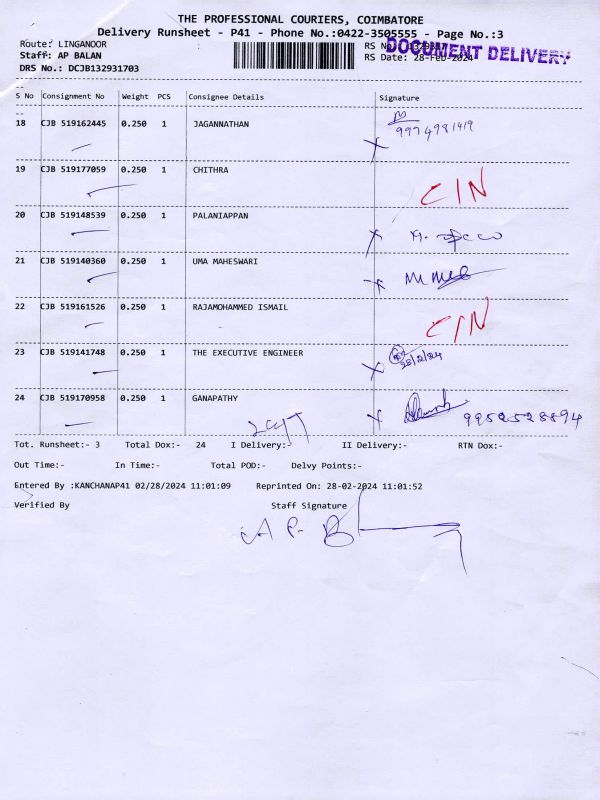 THE PROFESSIONAL COURIERS, COIMBATORE
Delivery Runsheet - P41 - Phone No.:0422-3505555 - Page No.:3
Route: LINGANOOR
RS No.
DOCUMENT DELIVERY
Staff: AP BALAN
RS Date: 28-Feb-2024
DRS No.: DCJB132931703
S No Consignment No Weight PCS Consignee Details Signature
18 CJB 519162445 0.250 1 JAGANNATHAN
19 CJB 519177059 0.250 1 CHITHRA CIN
20 CJB 519148539 0.250 1 PALANIAPPAN
21 CJB 519140360 0.250 1 UMA MAHESWARI
22 CJB 519161526 0.250 1 RAJAMOHAMMED ISMAIL CIN
23 CJB 519141748 0.250 1 THE EXECUTIVE ENGINEER 28/2/24
24 CJB 519170958 0.250 1 GANAPATHY
Tot. Runsheet:- 3 Total Dox:- 24 I Delivery:- II Delivery:- RTN Dox:-
Out Time:- In Time:- Total POD:- Delvy Points:-
Entered By :KANCHANAP41 02/28/2024 11:01:09 Reprinted On: 28-02-2024 11:01:52
Verified By Staff Signature
A P B